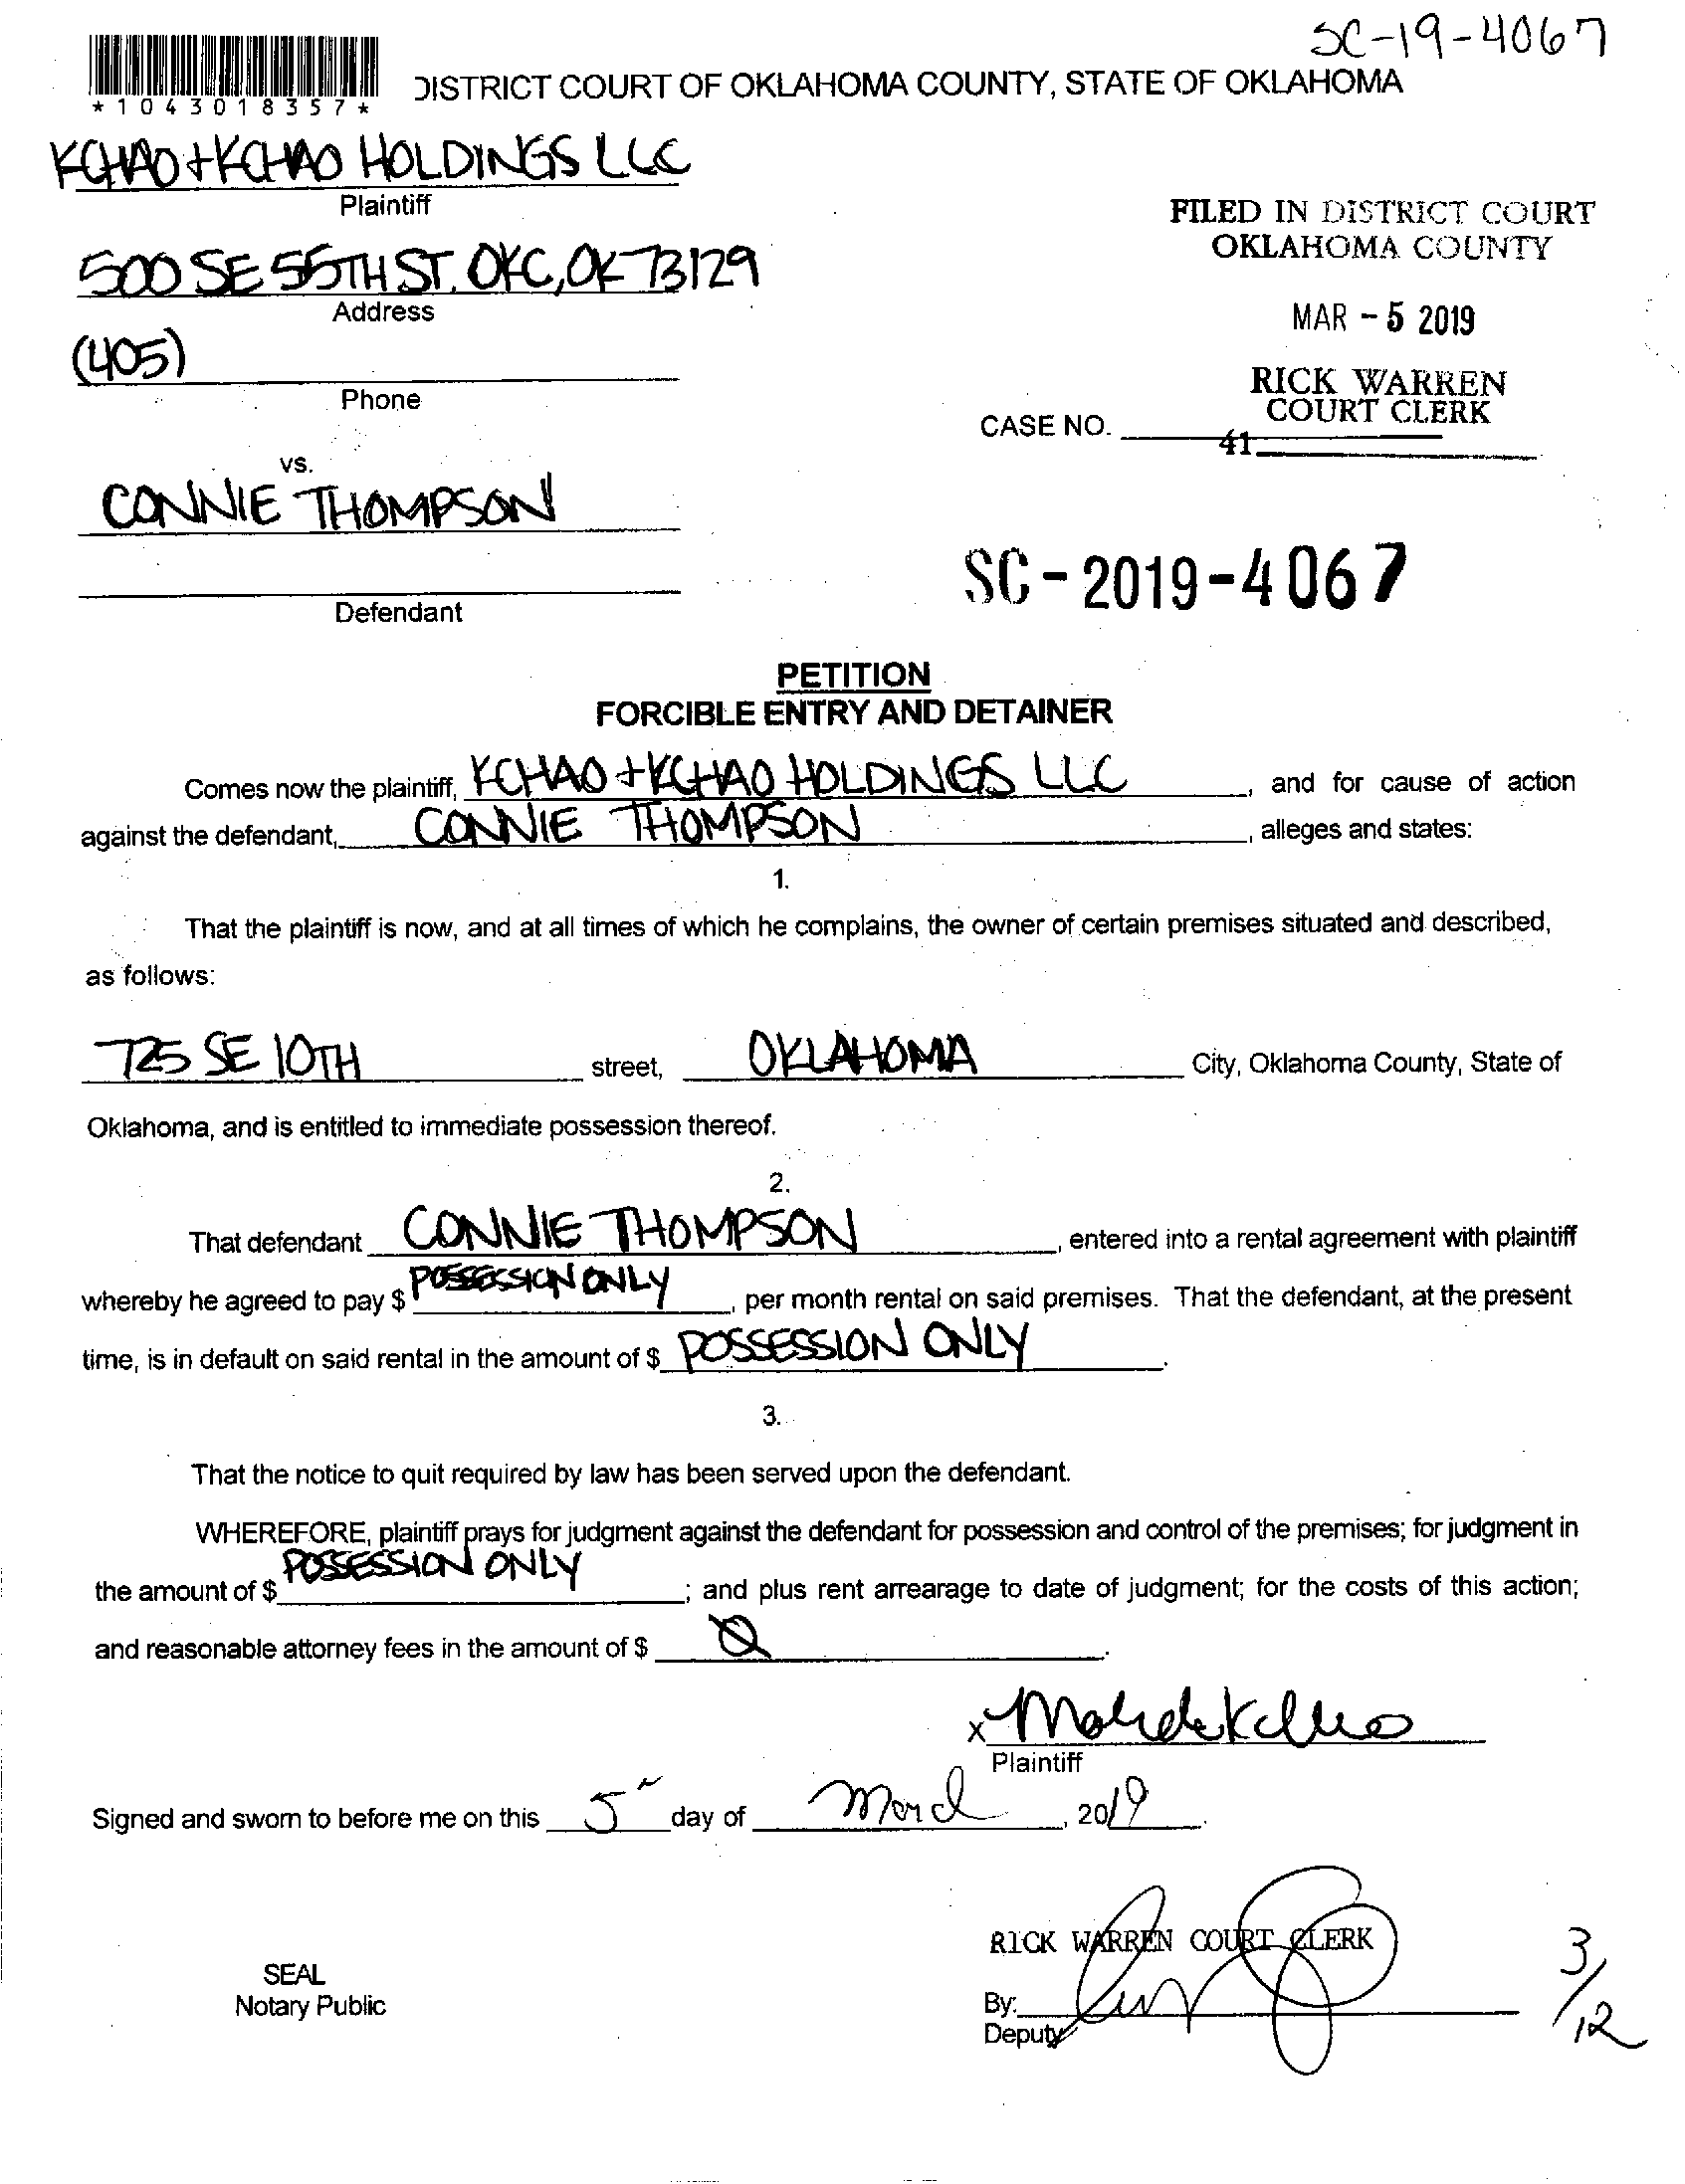 SC-19-4067
*1043018357*
DISTRICT COURT OF OKLAHOMA COUNTY, STATE OF OKLAHOMA
KCHAO + KCHAO HOLDINGS LLC
Plaintiff
FILED IN DISTRICT COURT
OKLAHOMA COUNTY
500 SE 55TH ST. OKC, OK 73129
Address
MAR - 5 2019
(405)
Phone
RICK WARREN
COURT CLERK
CASE NO.
41
vs.
CONNIE THOMPSON
Defendant
SC-2019-4067
PETITION
FORCIBLE ENTRY AND DETAINER
Comes now the plaintiff, KCHAO + KCHAO HOLDINGS LLC, and for cause of action
against the defendant, CONNIE THOMPSON, alleges and states:
1.
That the plaintiff is now, and at all times of which he complains, the owner of certain premises situated and described,
as follows:
725 SE 10TH street, OKLAHOMA City, Oklahoma County, State of
Oklahoma, and is entitled to immediate possession thereof.
2.
That defendant CONNIE THOMPSON, entered into a rental agreement with plaintiff
whereby he agreed to pay $ POSSESSION ONLY, per month rental on said premises. That the defendant, at the present
time, is in default on said rental in the amount of $ POSSESSION ONLY.
3.
That the notice to quit required by law has been served upon the defendant.
WHEREFORE, plaintiff prays for judgment against the defendant for possession and control of the premises; for judgment in
the amount of $ POSSESSION ONLY; and plus rent arrearage to date of judgment; for the costs of this action;
and reasonable attorney fees in the amount of $ Ø.
X
Plaintiff
Signed and sworn to before me on this 5th day of March, 2019.
RICK WARREN COURT CLERK
SEAL
Notary Public
By:
Deputy
3/12